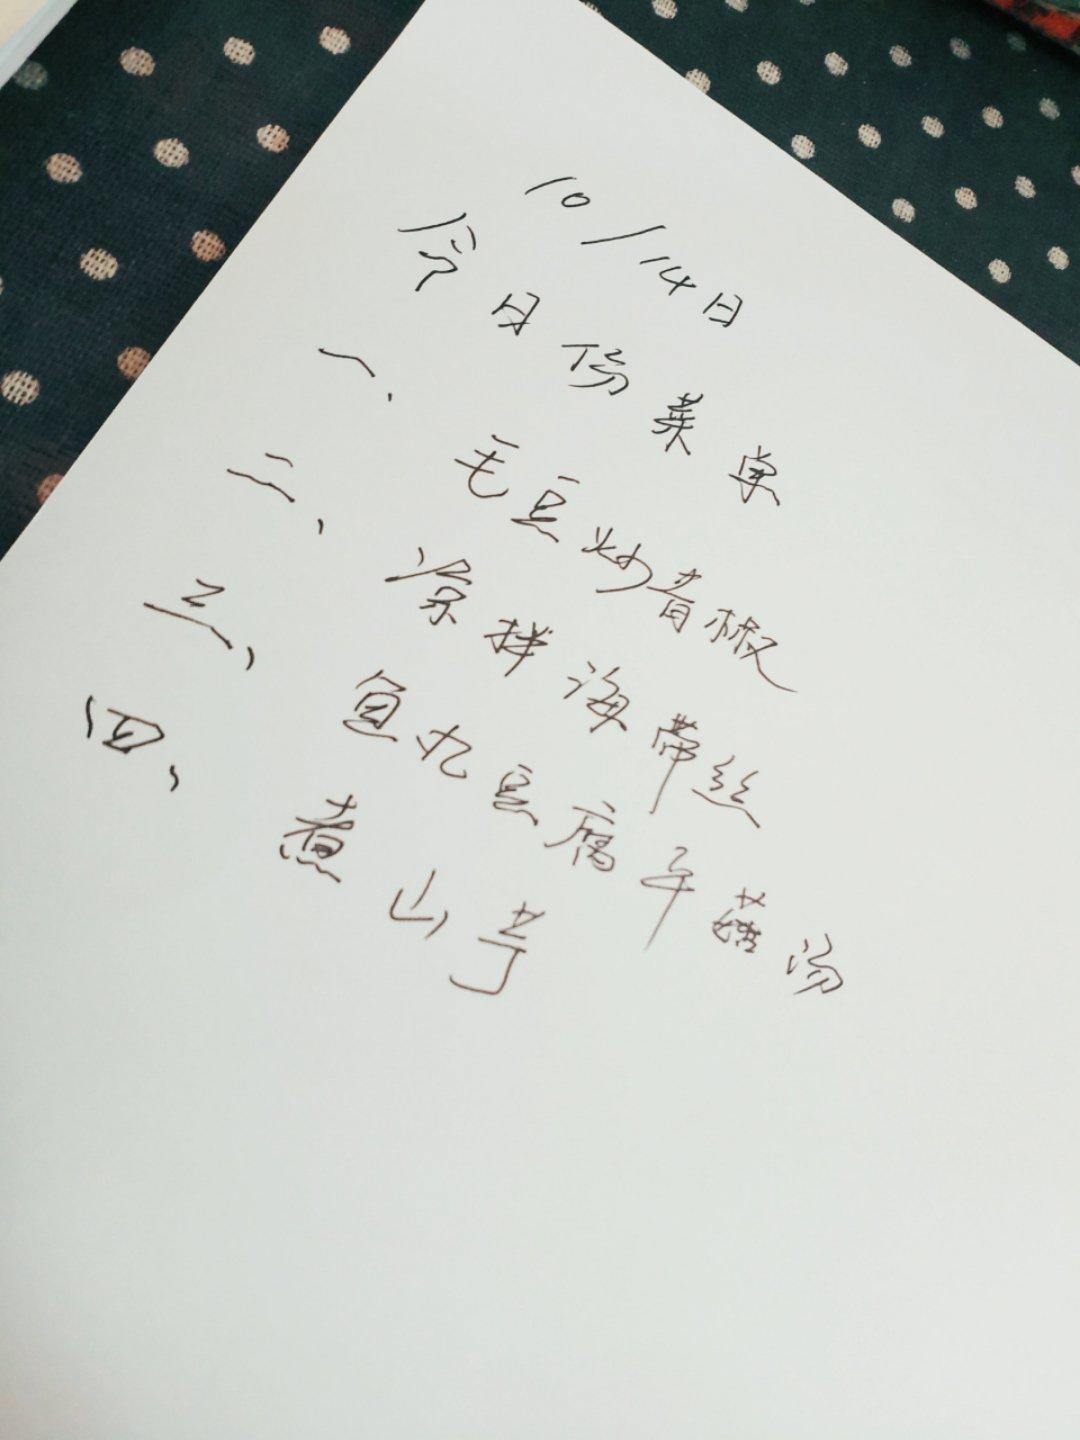 10/14日
今日份菜单
一、毛豆炒青椒
二、凉拌海带丝
三、鱼丸豆腐平菇汤
四、煮山芋